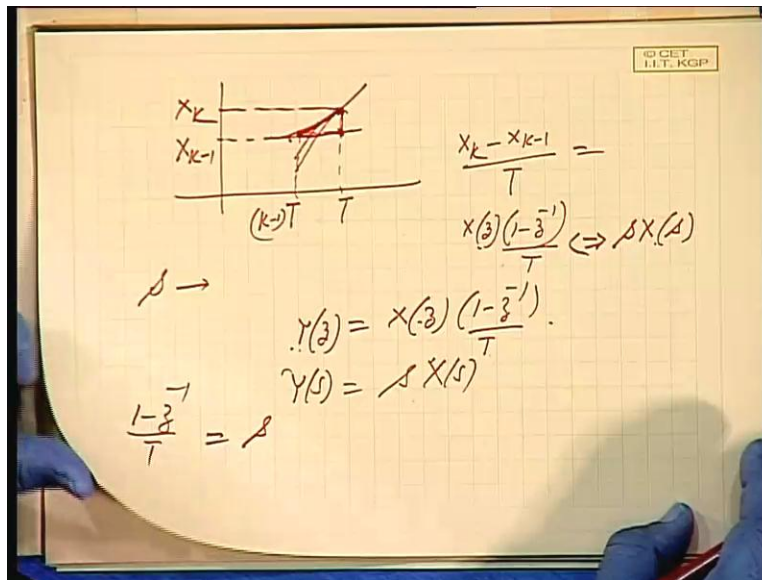 © CET
I.I.T. KGP
x_k
x_{k-1}
(k-1)T T
\frac{x_k - x_{k-1}}{T} =
X(z) \frac{(1-z^{-1})}{T} <=> s X(s)
s →
Y(z) = X(z) \frac{(1-z^{-1})}{T}.
Y(s) = s X(s)
\frac{1-z^{-1}}{T} = s